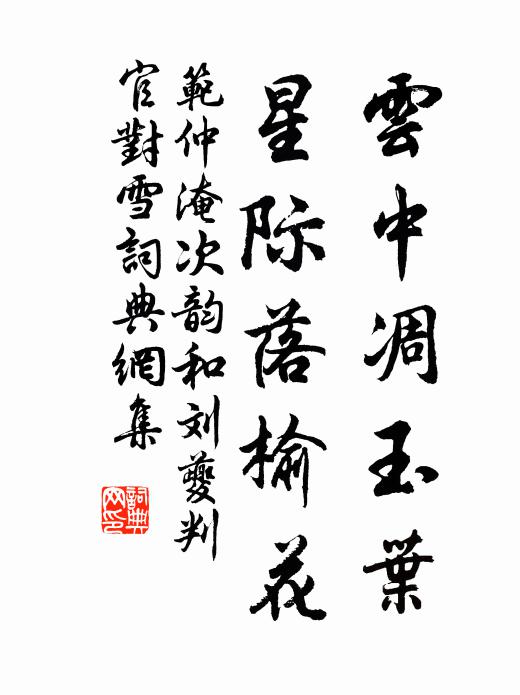 雲中凋玉葉
星际落榆花
範仲淹次韵和刘夔判
官對雪詞典網集
詞典网印